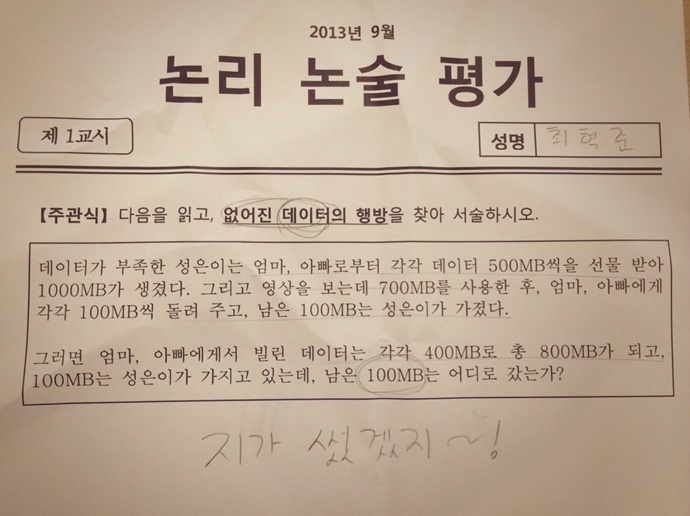 2013년 9월
논리 논술 평가
제 1교시
성명 최혁준
【주관식】 다음을 읽고, 없어진 데이터의 행방을 찾아 서술하시오.
데이터가 부족한 성은이는 엄마, 아빠로부터 각각 데이터 500MB씩을 선물 받아
1000MB가 생겼다. 그리고 영상을 보는데 700MB를 사용한 후, 엄마, 아빠에게
각각 100MB씩 돌려 주고, 남은 100MB는 성은이가 가졌다.
그러면 엄마, 아빠에게서 빌린 데이터는 각각 400MB로 총 800MB가 되고,
100MB는 성은이가 가지고 있는데, 남은 100MB는 어디로 갔는가?
지가 썼겠지~!